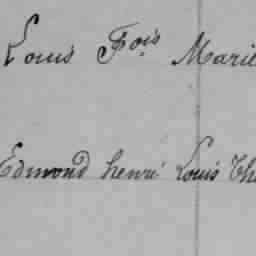 Louis Fois Marie
Edmond henri Louis